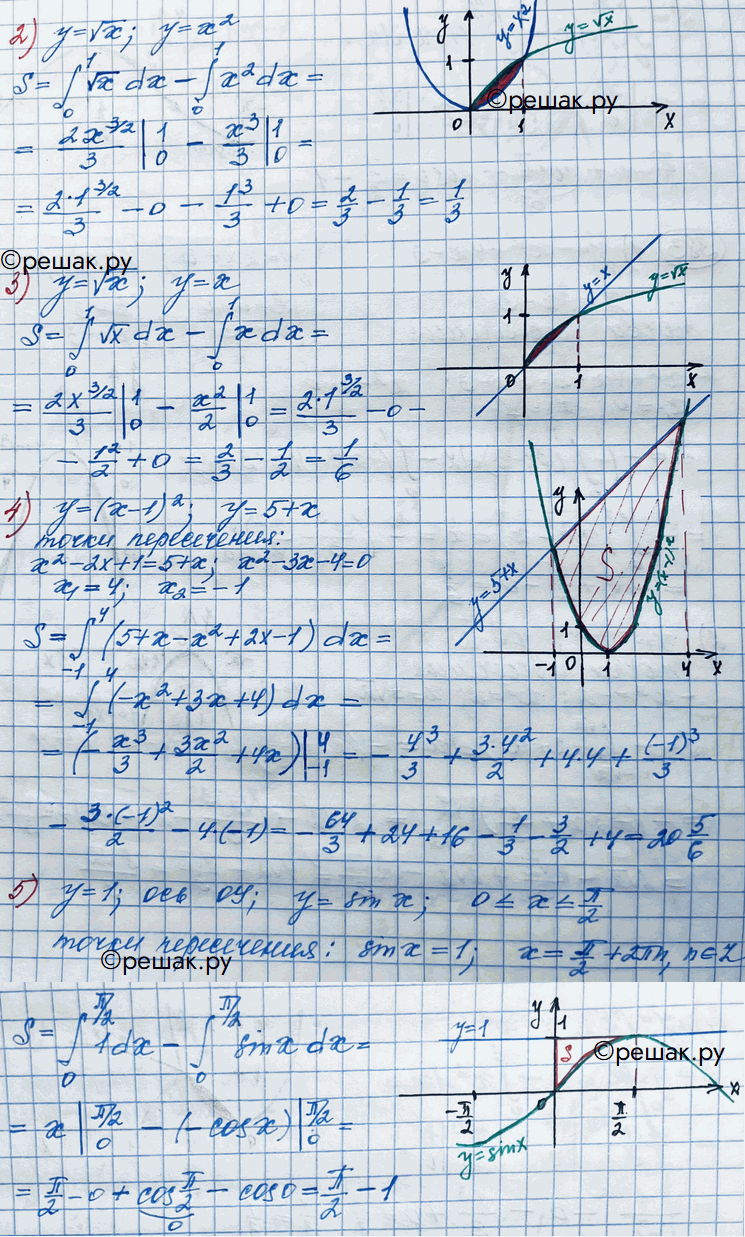 2) y=√x; y=x²
S = ∫₀¹ √x dx − ∫₀¹ x² dx =
= 2x^(3/2)/3 |₀¹ − x³/3 |₀¹ =
= 2·1^(3/2)/3 − 0 − 1³/3 + 0 = 2/3 − 1/3 = 1/3
y 1 0 1 x y=x² y=√x
©решак.ру
©решак.ру
3) y=√x; y=x
S = ∫₀¹ √x dx − ∫₀¹ x dx =
= 2x^(3/2)/3 |₀¹ − x²/2 |₀¹ = 2·1^(3/2)/3 − 0 −
− 1²/2 + 0 = 2/3 − 1/2 = 1/6
y 1 0 1 x y=x y=√x
4) y=(x−1)²; y=5+x
точки пересечения:
x²−2x+1=5+x; x²−3x−4=0
x₁=4; x₂=−1
S = ∫₋₁⁴ (5+x−x²+2x−1) dx =
= ∫₋₁⁴ (−x²+3x+4) dx =
= (−x³/3 + 3x²/2 + 4x) |₋₁⁴ = − 4³/3 + 3·4²/2 + 4·4 + (−1)³/3 −
− 3·(−1)²/2 − 4·(−1) = − 64/3 + 24 + 16 − 1/3 − 3/2 + 4 = 20 5/6
y S 1 −1 0 1 4 x y=5+x y=(x−1)²
5) y=1; ось OY; y= sin x; 0 ≤ x ≤ π/2
точки пересечения: sin x = 1; x = π/2 + 2πn, n∈Z
©решак.ру
S = ∫₀^(π/2) 1 dx − ∫₀^(π/2) sin x dx =
= x |₀^(π/2) − (−cos x) |₀^(π/2) =
= π/2 − 0 + cos π/2 − cos 0 = π/2 − 1
0
y=1 y 1 S x −π/2 0 π/2 y=sinx
©решак.ру